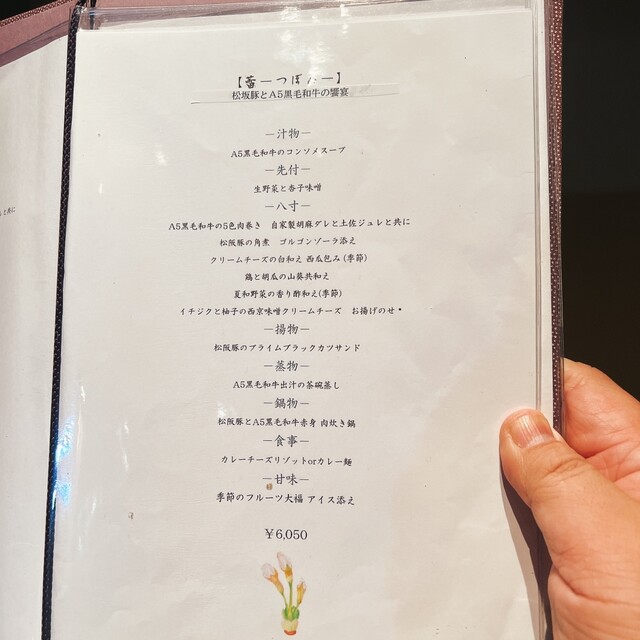 【蕾—つぼみ—】
松坂豚とA5黒毛和牛の饗宴
—汁物—
A5黒毛和牛のコンソメスープ
—先付—
生野菜と杏子味噌
—八寸—
A5黒毛和牛の5色肉巻き 自家製胡麻ダレと土佐ジュレと共に
松阪豚の角煮 ゴルゴンゾーラ添え
クリームチーズの白和え 西瓜包み(季節)
鶏と胡瓜の山葵共和え
夏和野菜の香り酢和え(季節)
イチジクと柚子の西京味噌クリームチーズ お揚げのせ*
—揚物—
松阪豚のプライムブラックカツサンド
—蒸物—
A5黒毛和牛出汁の茶碗蒸し
—鍋物—
松阪豚とA5黒毛和牛赤身 肉炊き鍋
—食事—
カレーチーズリゾットorカレー麺
—甘味—
季節のフルーツ大福 アイス添え
￥6,050